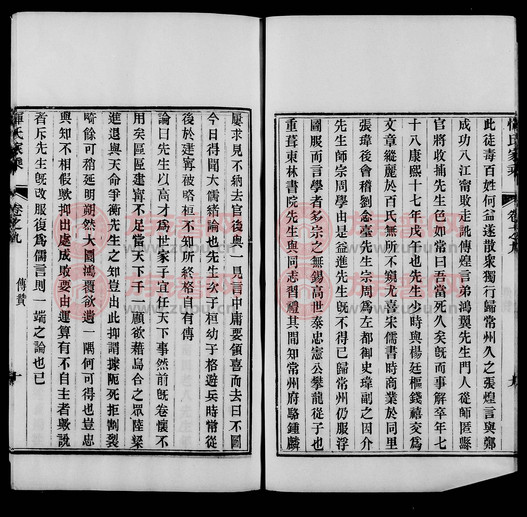 此徒毒百姓何益遂散衆獨行歸常州久之張煌言與鄭
成功入江甯敗走訛傳煌言弟鴻翼先生門人從師匿縣
官將收捕先生色如常曰吾當死久矣旣而事解卒年七
十八康熙十七年戊午也先生少時與楊廷樞錢禧交爲
文章縱麗於百氏無所不窺尤喜宋儒書時商業於同里
張瑋後會稽劉念臺先生宗周爲左都御史瑋副之因介
先生師宗周學由是益進先生旣不得已歸常州仍服浮
圖服而言學者多宗之無錫高世泰忠憲公攀龍從子也
重葺東林書院先生與同志習禮其間知常州府駱鍾麟
屢求見不納去官後與一見言中庸要領喜而去曰不圖
今日得聞大儒緒論也先生次子桓幼子格遊兵時常從
後於建寧被略桓不知所終格自有傳
論曰先生以高才爲世家子宜任天下事然前旣卷懷不
用矣區區建寧不足當天下千一顧欲藉烏合之眾陸梁
進退與天命爭衡先生之知豈出此抑謂據陿死拒割裂
畸餘可稍延明朔然大園鴻覆欲遺一隅何可得也豈忠
與知不相假歟抑出處成敗要由運算有不自主者歟說
者斥先生旣改服復爲儒言則一端之論也已
惲氏家乘
卷之九
傳贊
十